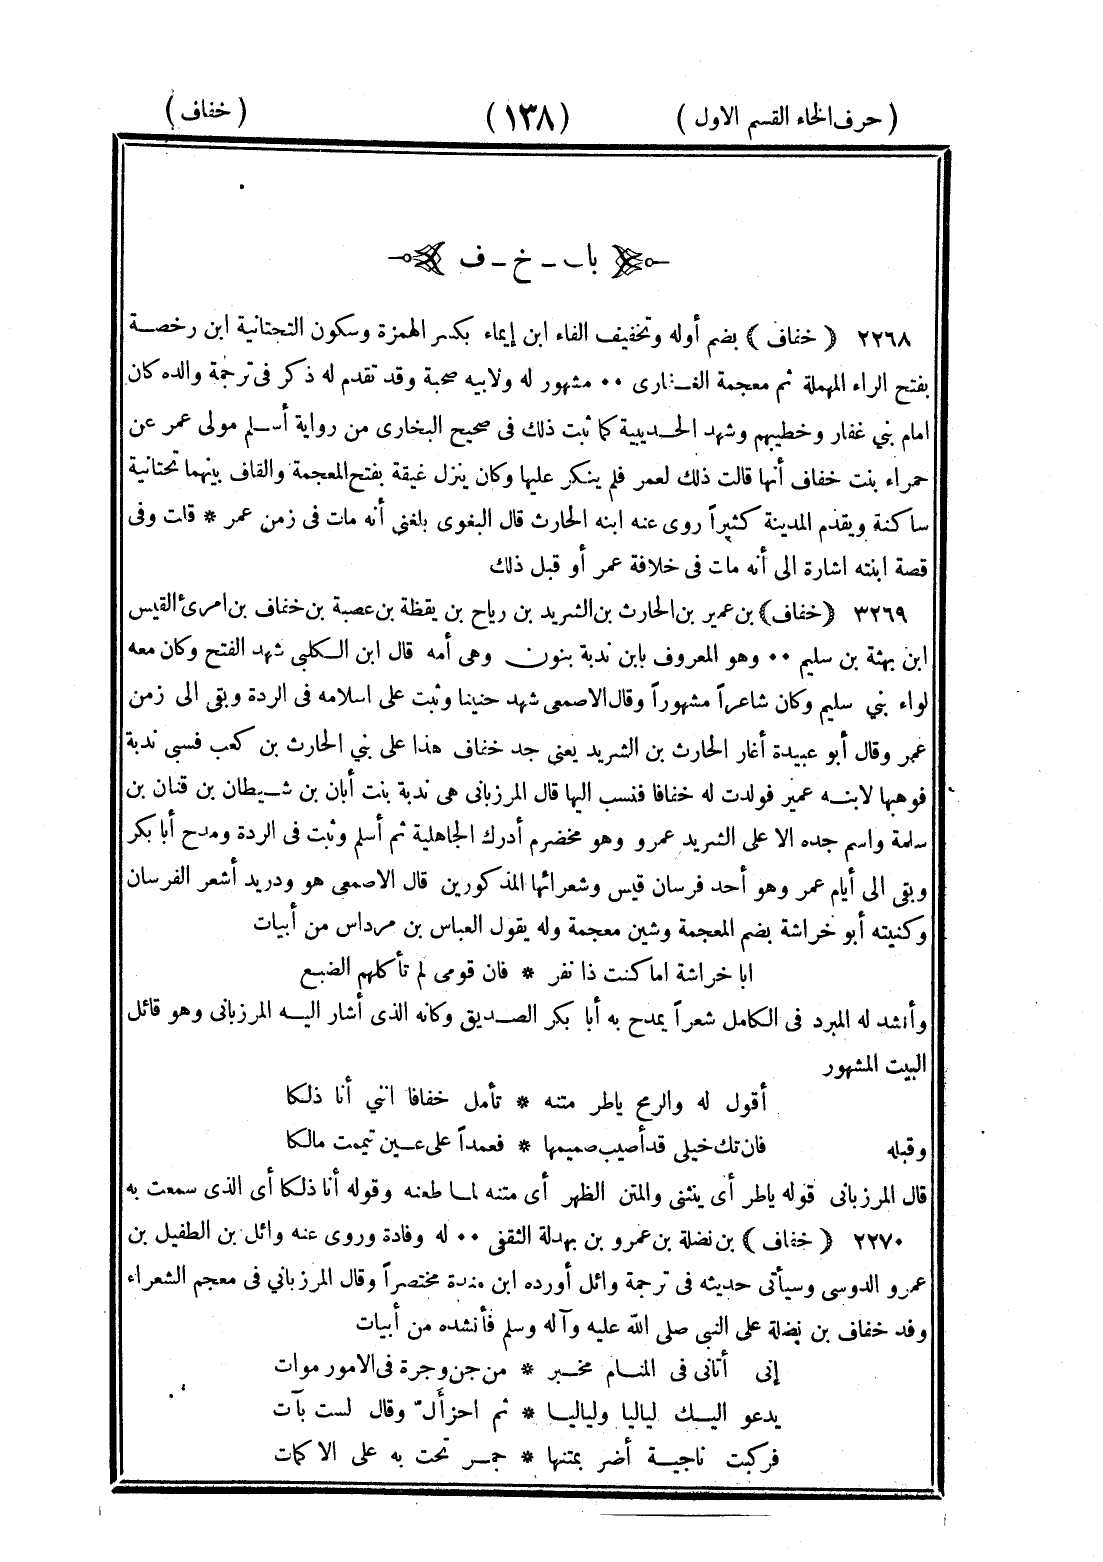 ( حرف الخاء القسم الاول ) (١٣٨) ( خفاف )
باب ـ خ ـ ف
٢٢٦٨ ( خفاف ) بضم أوله وتخفيف الفاء ابن إيماء بكسر الهمزة وسكون التحتانية ابن رخصة
بفتح الراء المهملة ثم معجمة الغفارى ٠٠ مشهور له ولابيه صحبة وقد تقدم له ذكر فى ترجمة والده كان
امام بني غفار وخطيبهم وشهد الحديبية كما ثبت ذلك فى صحيح البخارى من رواية أسلم مولى عمر عن
حمراء بنت خفاف أنها قالت ذلك لعمر فلم ينكر عليها وكان ينزل غيقة بفتح المعجمة والقاف بينهما تحتانية
ساكنة ويقدم المدينة كثيراً روى عنه ابنه الحارث قال البغوى بلغنى أنه مات فى زمن عمر * قلت وفى
قصة ابنته اشارة الى أنه مات فى خلافة عمر أو قبل ذلك
٣٢٦٩ ( خفاف ) بن عمير بن الحارث بن الشريد بن رياح بن يقظة بن عصبة بن خفاف بن امرئ القيس
ابن بهثة بن سليم ٠٠ وهو المعروف بابن ندبة بنون وهى أمه قال ابن الكلبي شهد الفتح وكان معه
لواء بني سليم وكان شاعراً مشهوراً وقال الاصمعى شهد حنينا وثبت على اسلامه فى الردة وبقى الى زمن
عمر وقال أبو عبيدة أغار الحارث بن الشريد يعنى جد خفاف هذا على بني الحارث بن كعب فسبى ندبة
فوهبها لابنه عمير فولدت له خفافا فنسب اليها قال المرزبانى هى ندبة بنت أبان بن شيطان بن قنان بن
سلمة واسم جده الا على الشريد عمرو وهو مخضرم أدرك الجاهلية ثم أسلم وثبت فى الردة ومدح أبا بكر
وبقى الى أيام عمر وهو أحد فرسان قيس وشعرائها المذكورين قال الاصمعى هو ودريد أشعر الفرسان
وكنيته أبو خراشة بضم المعجمة وشين معجمة وله يقول العباس بن مرداس من أبيات
ابا خراشة اما كنت ذا نفر * فان قومى لم تأكلهم الضبع
وأنشد له المبرد فى الكامل شعراً يمدح به أبا بكر الصديق وكانه الذى أشار اليه المرزبانى وهو قائل
البيت المشهور
أقول له والرمح ياطر متنه * تأمل خفافا انني أنا ذلكا
وقبله فان تك خيلى قد أصيب صميمها * فعمداً على عين تيممت مالكا
قال المرزبانى قوله ياطر أى ينثنى والمتن الظهر أى متنه لما طعنه وقوله أنا ذلكا أى الذى سمعت به
٢٢٧٠ ( خفاف ) بن نضلة بن عمرو بن بهدلة الثقفى ٠٠ له وفادة وروى عنه وائل بن الطفيل بن
عمرو الدوسى وسيأتى حديثه فى ترجمة وائل أورده ابن مندة مختصراً وقال المرزباني فى معجم الشعراء
وفد خفاف بن نضلة على النبى صلى الله عليه وآله وسلم فأنشده من أبيات
إنى أتانى فى المنام مخبر * من جن وجرة فى الامور موات
يدعو اليك لياليا ولياليا * ثم احزألّ وقال لست بآت
فركبت ناجية أضر بمتنها * جمر تحت به على الاكمات